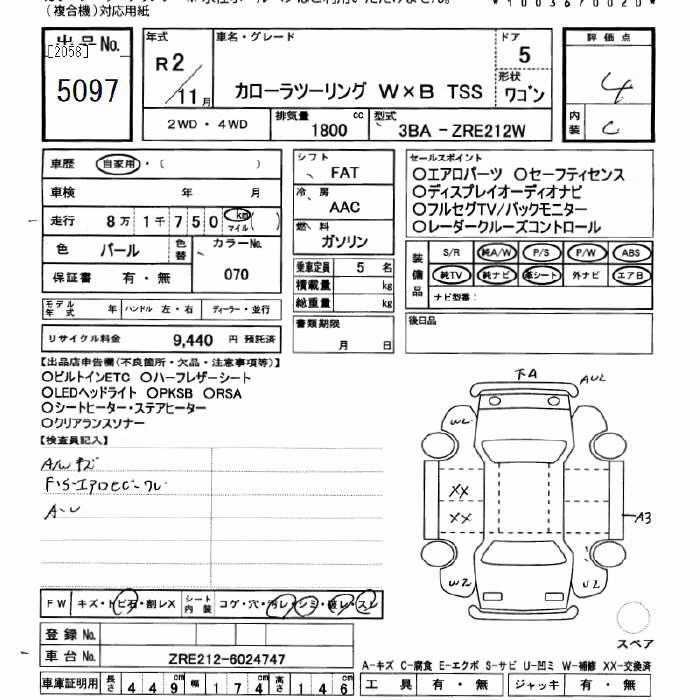 (複合機)対応用紙
*1003670020*
出品No.
[2058]
5097
年式
R2/11月
車名・グレード
カローラツーリング W×B TSS
ドア
5
形状
ワゴン
評価点
4
内装
C
2WD・4WD
排気量 1800 cc
型式 3BA-ZRE212W
車歴 自家用・( )
車検 年 月
走行 8万1千750 km マイル ( )
色 パール 色替 カラーNo. 070
保証書 有・無
シフト FAT
冷房 AAC
燃料 ガソリン
乗車定員 5 名
積載量 kg
総重量 kg
セールスポイント
○エアロパーツ ○セーフティセンス
○ディスプレイオーディオナビ
○フルセグTV/バックモニター
○レーダークルーズコントロール
装備品
S/R 純A/W P/S P/W ABS
純TV 純ナビ 革シート 外ナビ エアB
ナビ型番:
モデル年式 年 ハンドル 左・右 ディーラー・並行
リサイクル料金 9,440 円 預託済
書類期限
月 日
後日品
【出品店申告欄(不良箇所・欠品・注意事項等)】
○ビルトインETC ○ハーフレザーシート
○LEDヘッドライト ○PKSB ○RSA
○シートヒーター・ステアヒーター
○クリアランスソナー
【検査員記入】
A/Wキズ
A-U
下A
AU2
WU
XX
XX
A3
W2
U2
スペア
FW キズ・トビ石・割レX シート内装 コゲ・穴・汚レ・シミ・破レ・スレ
登録No.
車台No. ZRE212-6024747
車庫証明用 長さ 449cm 幅 174cm 高さ 146cm
A-キズ C-腐食 E-エクボ S-サビ U-凹ミ W-補修 XX-交換済
工具 有・無 ジャッキ 有・無